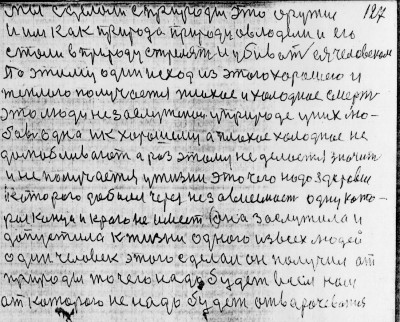 мы сделали с природы это оружие 127
и им как природа природу овладили и его
стали в природу стрелять и убивать ея человеком
По этому один исход из этого хорошего и
теплого получается плохое и холодное смерть
это люди не заслужили у природе у них лю-
бов одна и к хорошему а плохое холодное не
долюбливают а раз этому не делается значит
и не получается у жизни это чего надо здоровия
которого добился через независимость одну кото-
рой конца и края не имеет Она заслужила и
допустила к жизни одного из всех людей
один человек этого сделал он получил от
природы то чего надо будет всем нам
от которого не надо будет отворачиватся